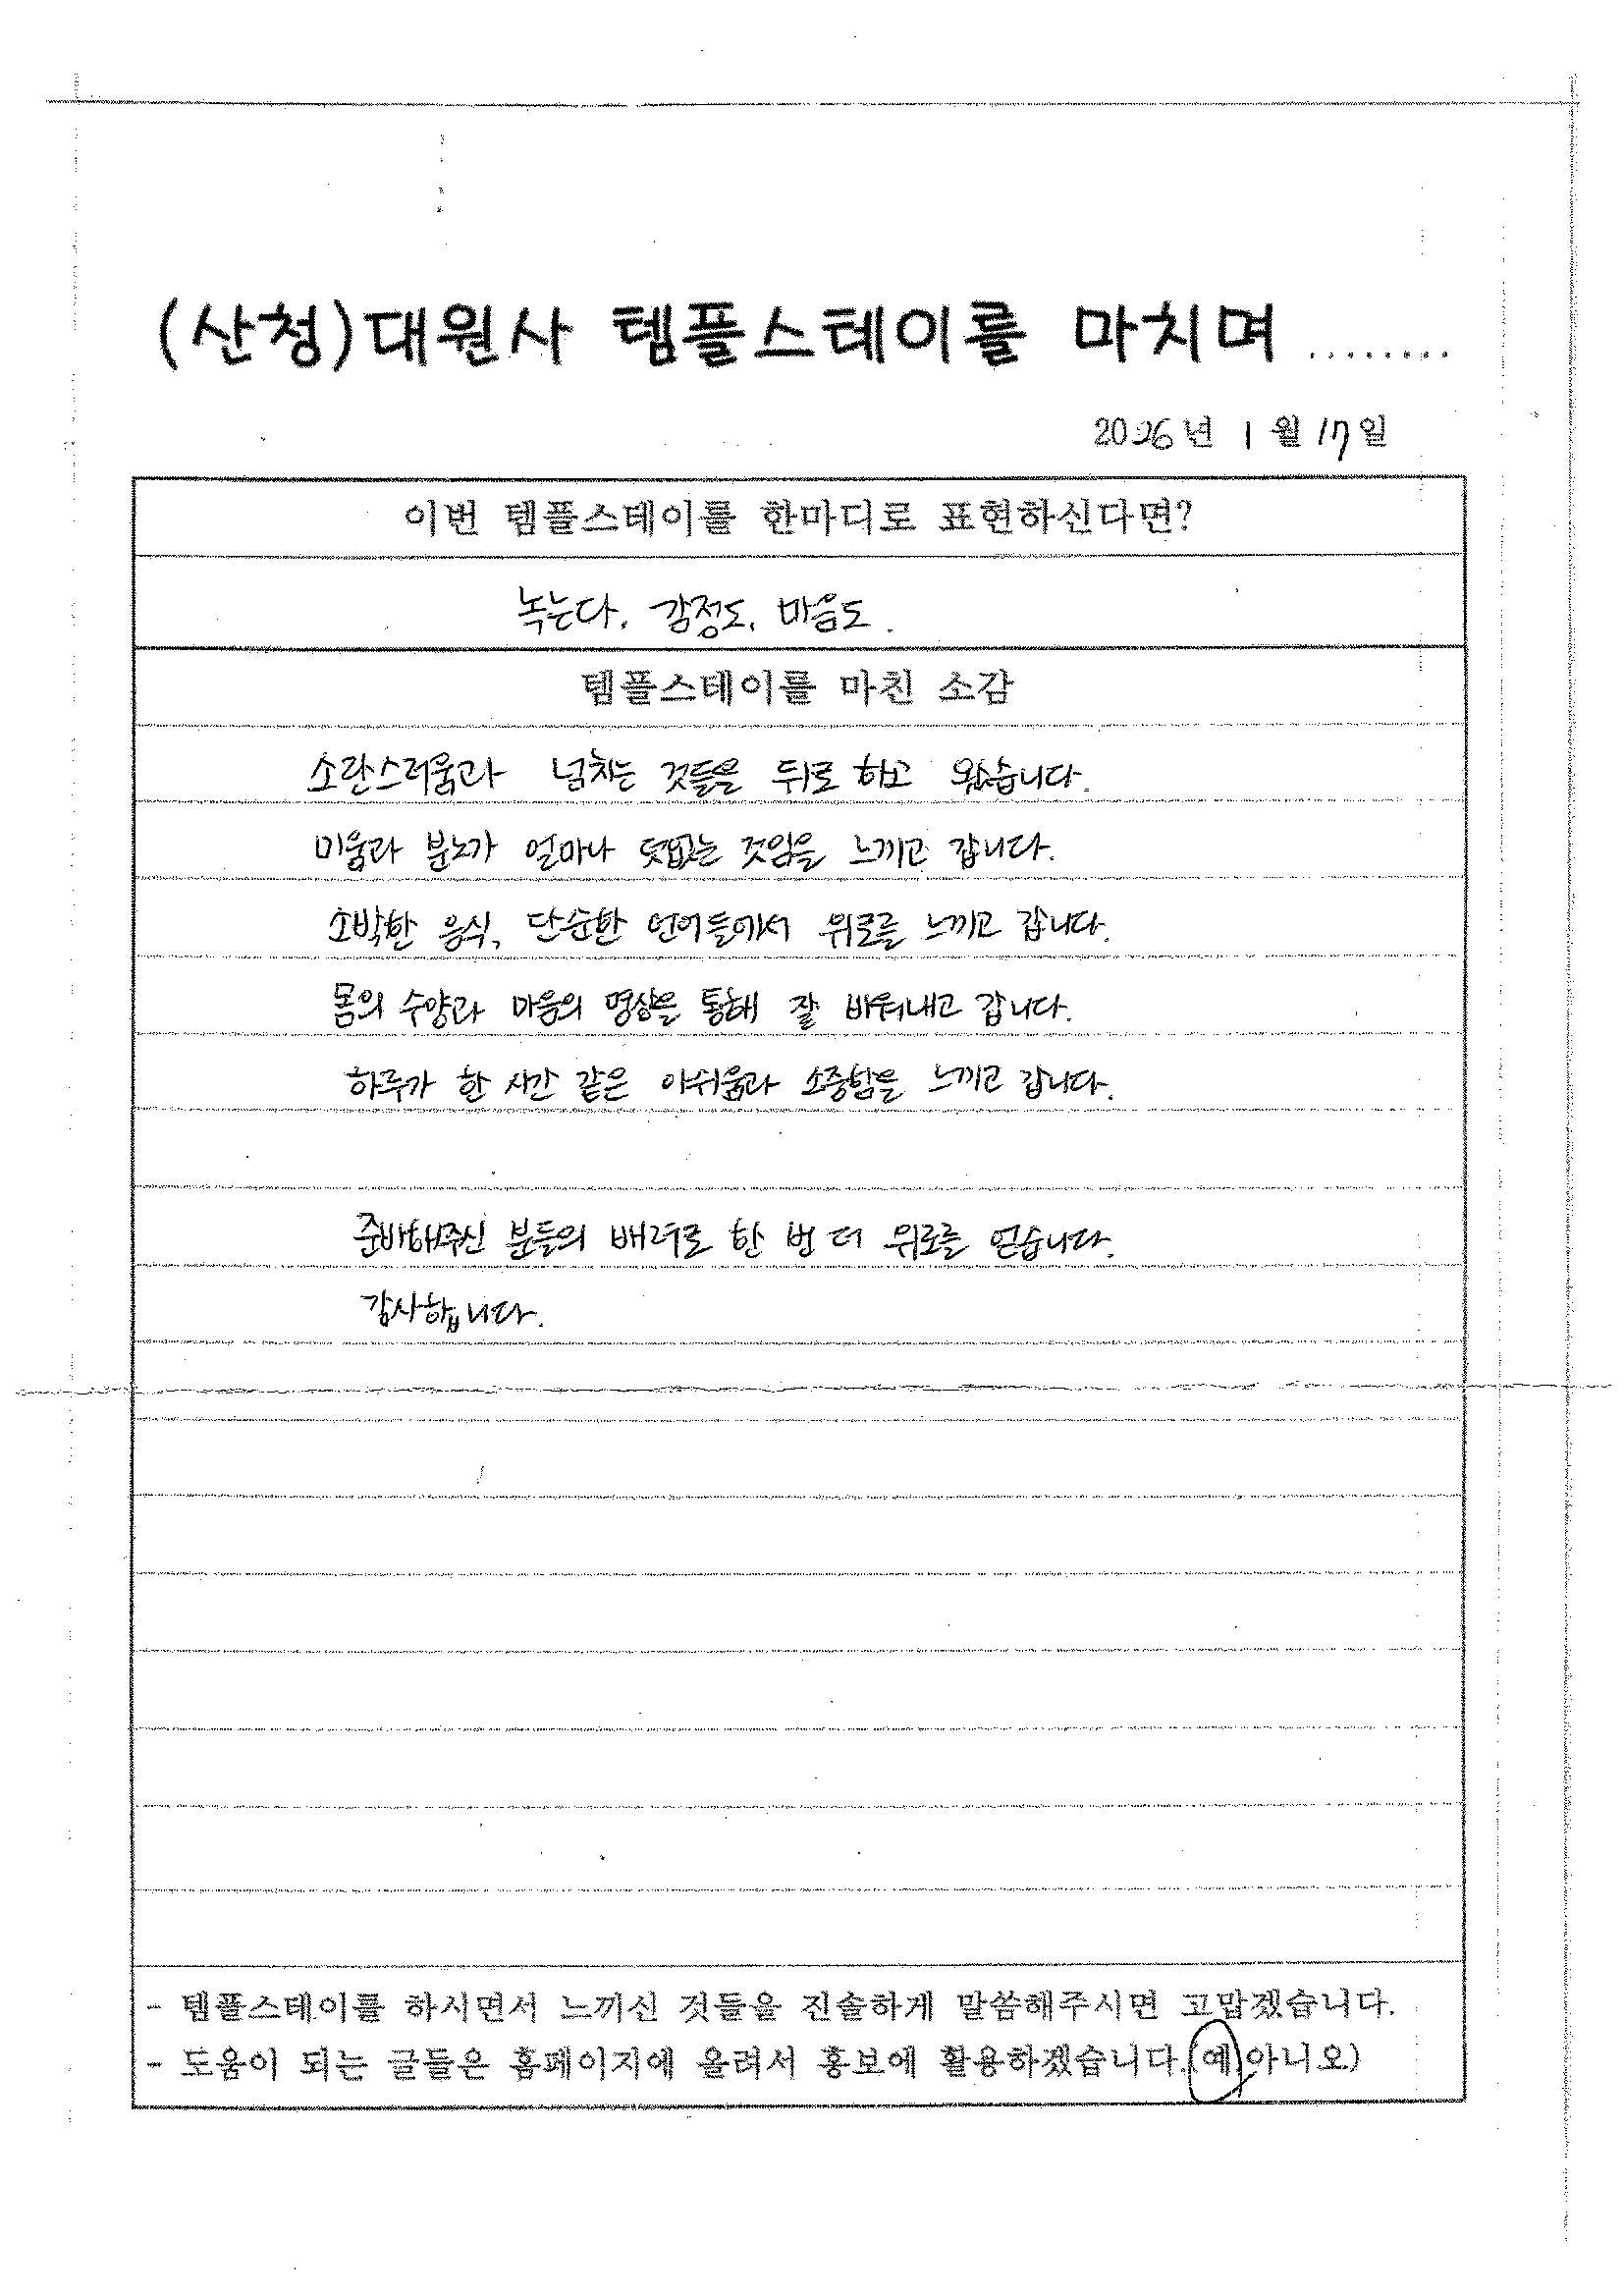 (산청)대원사 템플스테이를 마치며 ........
2026년 1월 17일
이번 템플스테이를 한마디로 표현하신다면?
녹는다. 감정도, 마음도.
템플스테이를 마친 소감
소란스러움과 넘치는 것들을 뒤로 하고 왔습니다.
미움과 분노가 얼마나 덧없는 것임을 느끼고 갑니다.
소박한 음식, 단순한 언어들에서 위로를 느끼고 갑니다.
몸의 수양과 마음의 명상을 통해 잘 비워내고 갑니다.
하루가 한 시간 같은 아쉬움과 소중함을 느끼고 갑니다.
준비해주신 분들의 배려로 한 번 더 위로를 얻습니다.
감사합니다.
- 템플스테이를 하시면서 느끼신 것들을 진솔하게 말씀해주시면 고맙겠습니다.
- 도움이 되는 글들은 홈페이지에 올려서 홍보에 활용하겠습니다.(예,아니오)